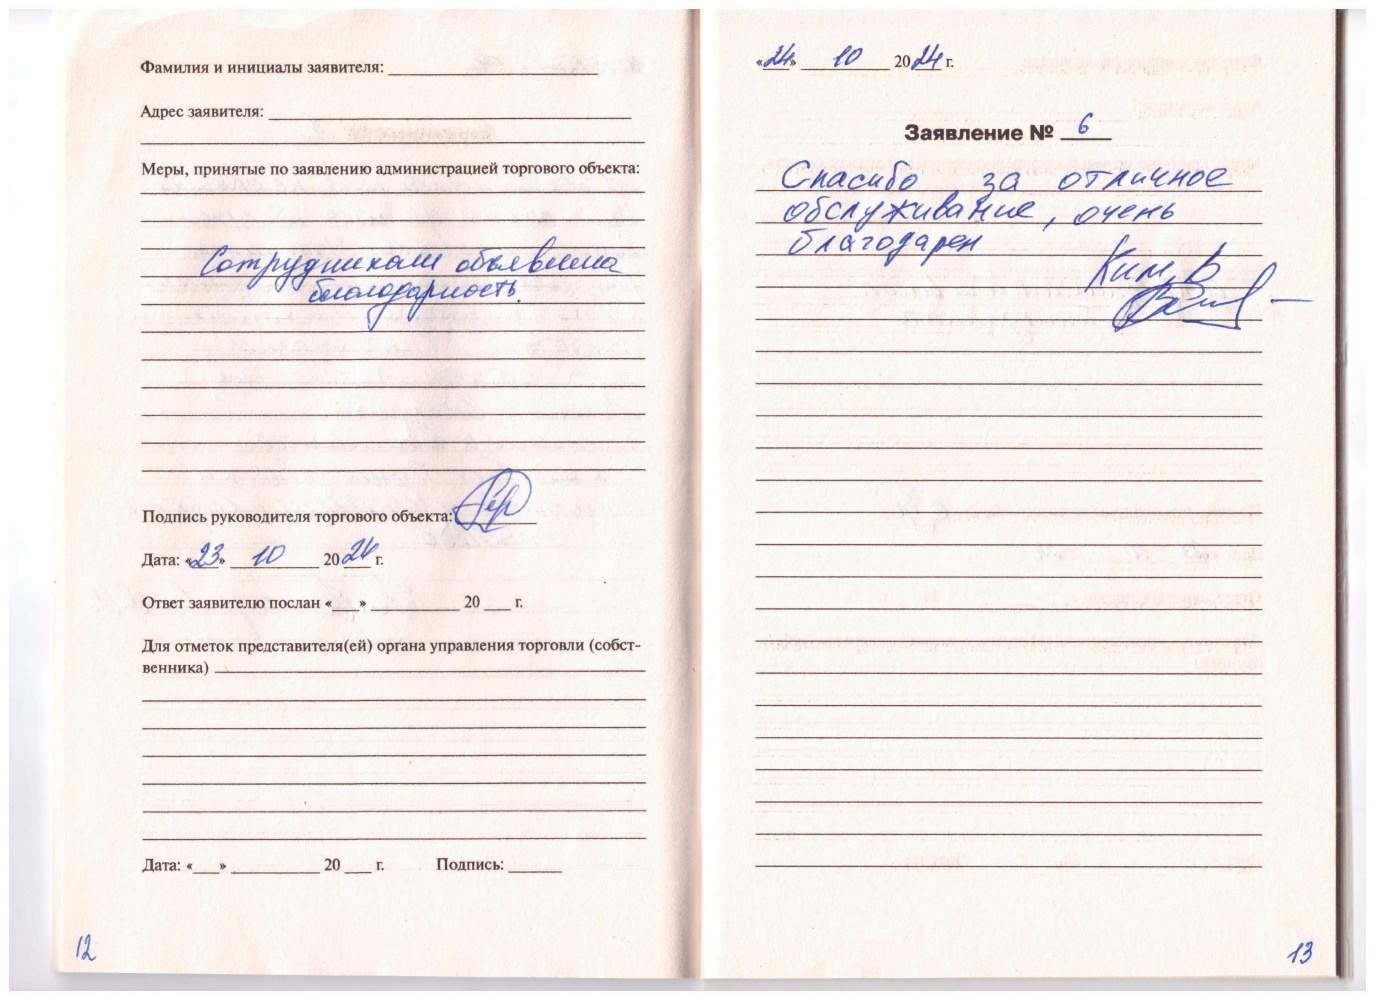 Фамилия и инициалы заявителя:
Адрес заявителя:
Меры, принятые по заявлению администрацией торгового объекта:
Сотрудникам объявлена
благодарность.
Подпись руководителя торгового объекта:
Дата: «23» 10 2024 г.
Ответ заявителю послан «___» ______ 20 ___ г.
Для отметок представителя(ей) органа управления торговли (собст-
венника)
Дата: «___» ______ 20 ___ г. Подпись: ______
12
«24» 10 2024 г.
Заявление № 6
Спасибо за отличное
обслуживание, очень
благодарен
13